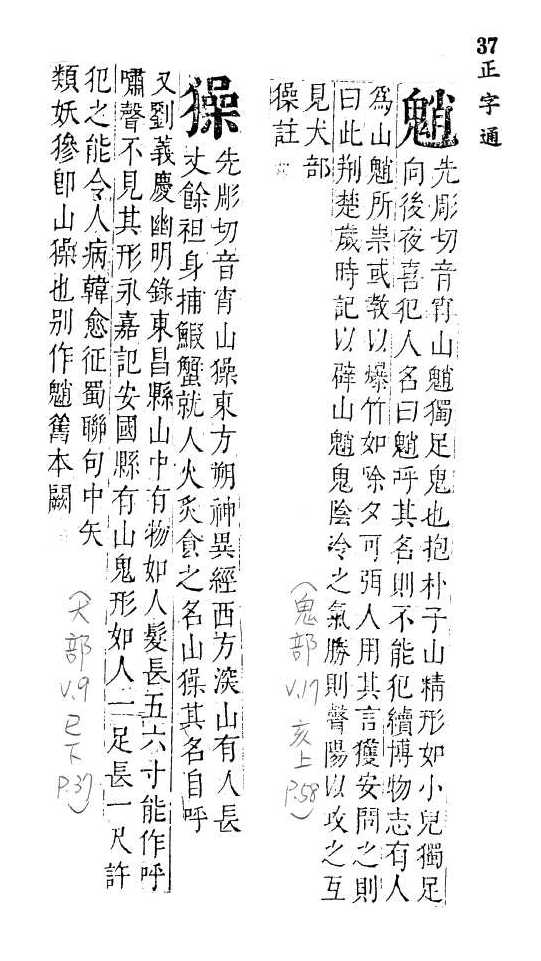 37 正字通
魈 先彫切音宵山魈獨足鬼也抱朴子山精形如小兒獨足
向後夜喜犯人名曰魈呼其名則不能犯續博物志有人
爲山魈所祟或教以爆竹如除夕可弭人用其言獲安問之則
曰此荆楚歲時記以辟山魈鬼陰冷之氣勝則聲陽以攻之互
見犬部
㺐註
(鬼部 V.17 亥上 P.58)
㺐 先彫切音宵山㺐東方朔神異經西方深山有人長
丈餘袒身捕鰕蟹就人火炙食之名山㺐其名自呼
又劉義慶幽明錄東昌縣山中有物如人髮長五六寸能作呼
嘯聲不見其形永嘉記安國縣有山鬼形如人一足長一尺許
犯之能令人病韓愈征蜀聯句中矢
類妖㺑卽山㺐也別作魈舊本闕
(犬部 V.9 巳下 P.37)